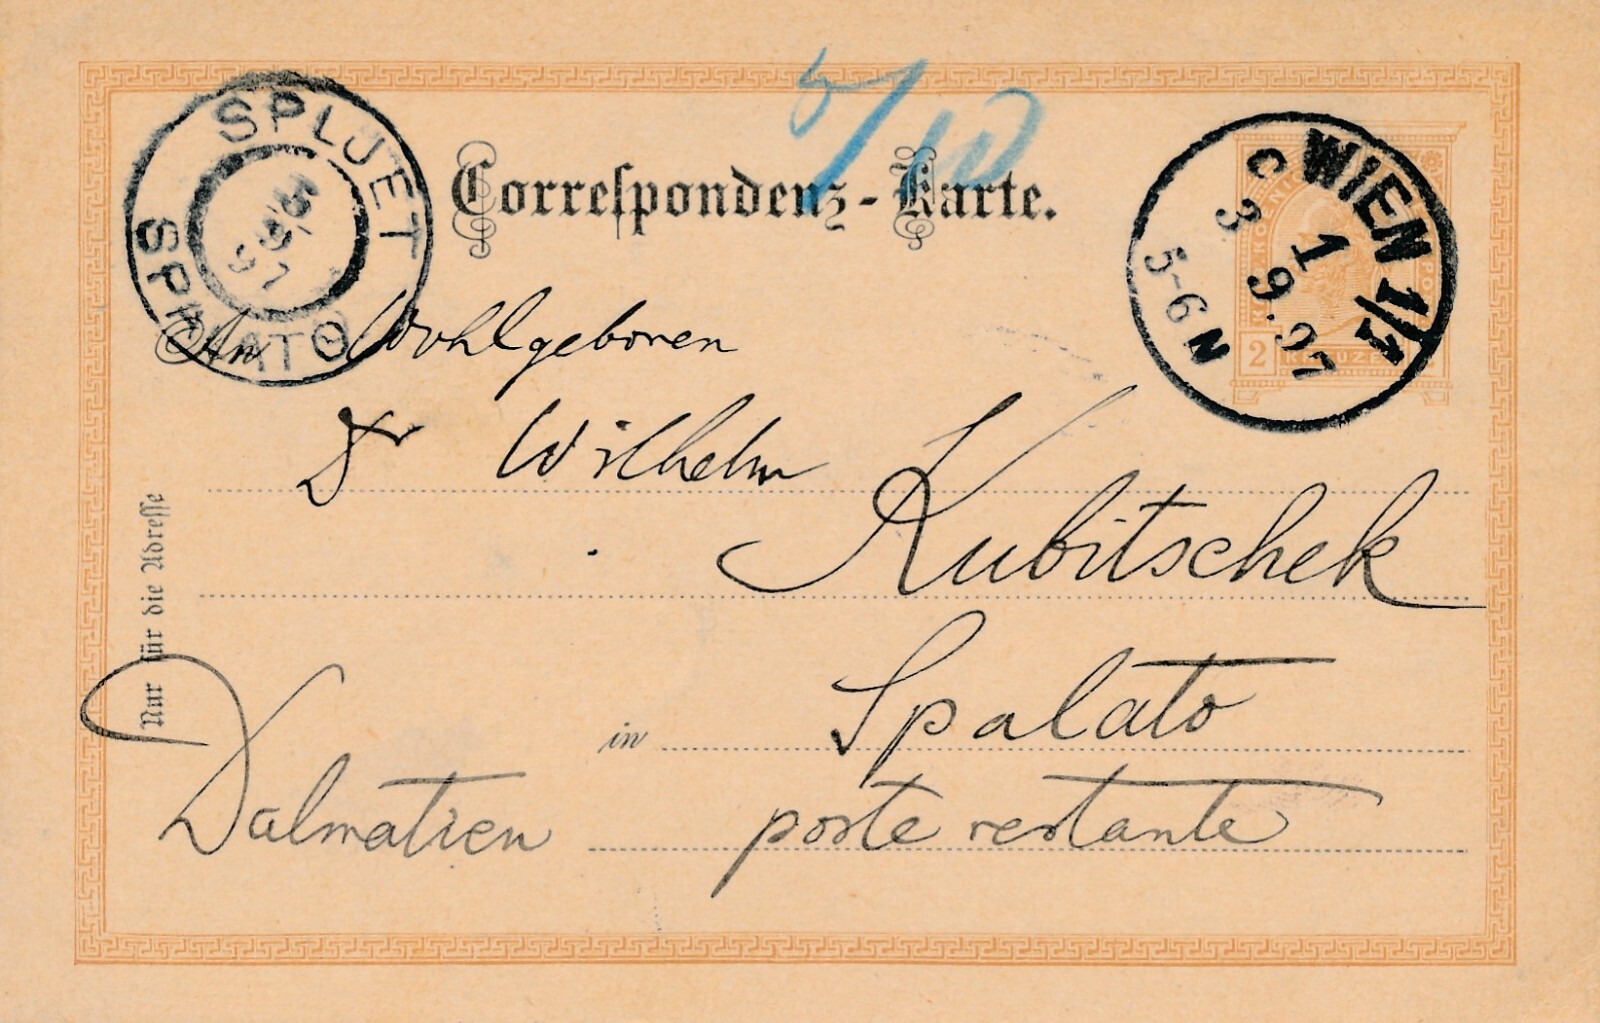 5/10
Correspondenz-Karte.
SPLJET
SPALATO
5/9
97
WIEN 1/1
1
9.97
C
3
5-6 N
2
KREUZER
An Wohlgeboren
Dr Wilhelm
Kubitschek
in Spalato
Dalmatien poste restante
Nur für die Adresse